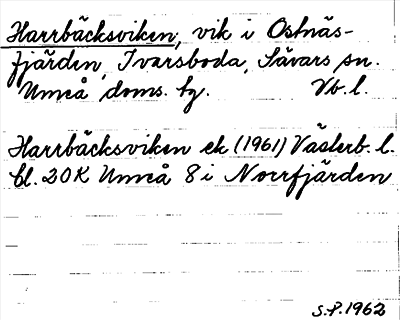 Harrbäcksviken, vik i Ostnäs-
fjärden, Ivarsboda, Sävars sn.
Umeå doms. hg. Vb. l.
Harrbäcksviken ek (1961) Västerb. l.
bl. 20K Umeå 8 i Norrfjärden
S.P. 1962